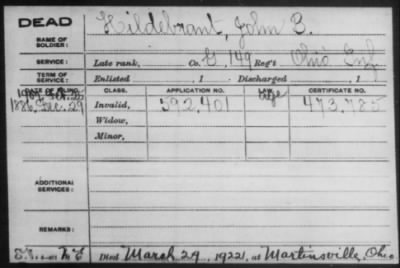 DEAD
NAME OF SOLDIER: Hildebrant, John B.
SERVICE: Late rank, Co. G, 149 Reg't Ohio Inf
TERM OF SERVICE: Enlisted , 1 Discharged , 1
DATE OF FILING. CLASS. APPLICATION NO. LAW. CERTIFICATE NO.
1886, Dec. 29 Invalid, 592,401 473,785
Widow,
Minor,
ADDITIONAL SERVICES:
REMARKS:
Died March 29, 1922, at Martinsville, Ohio